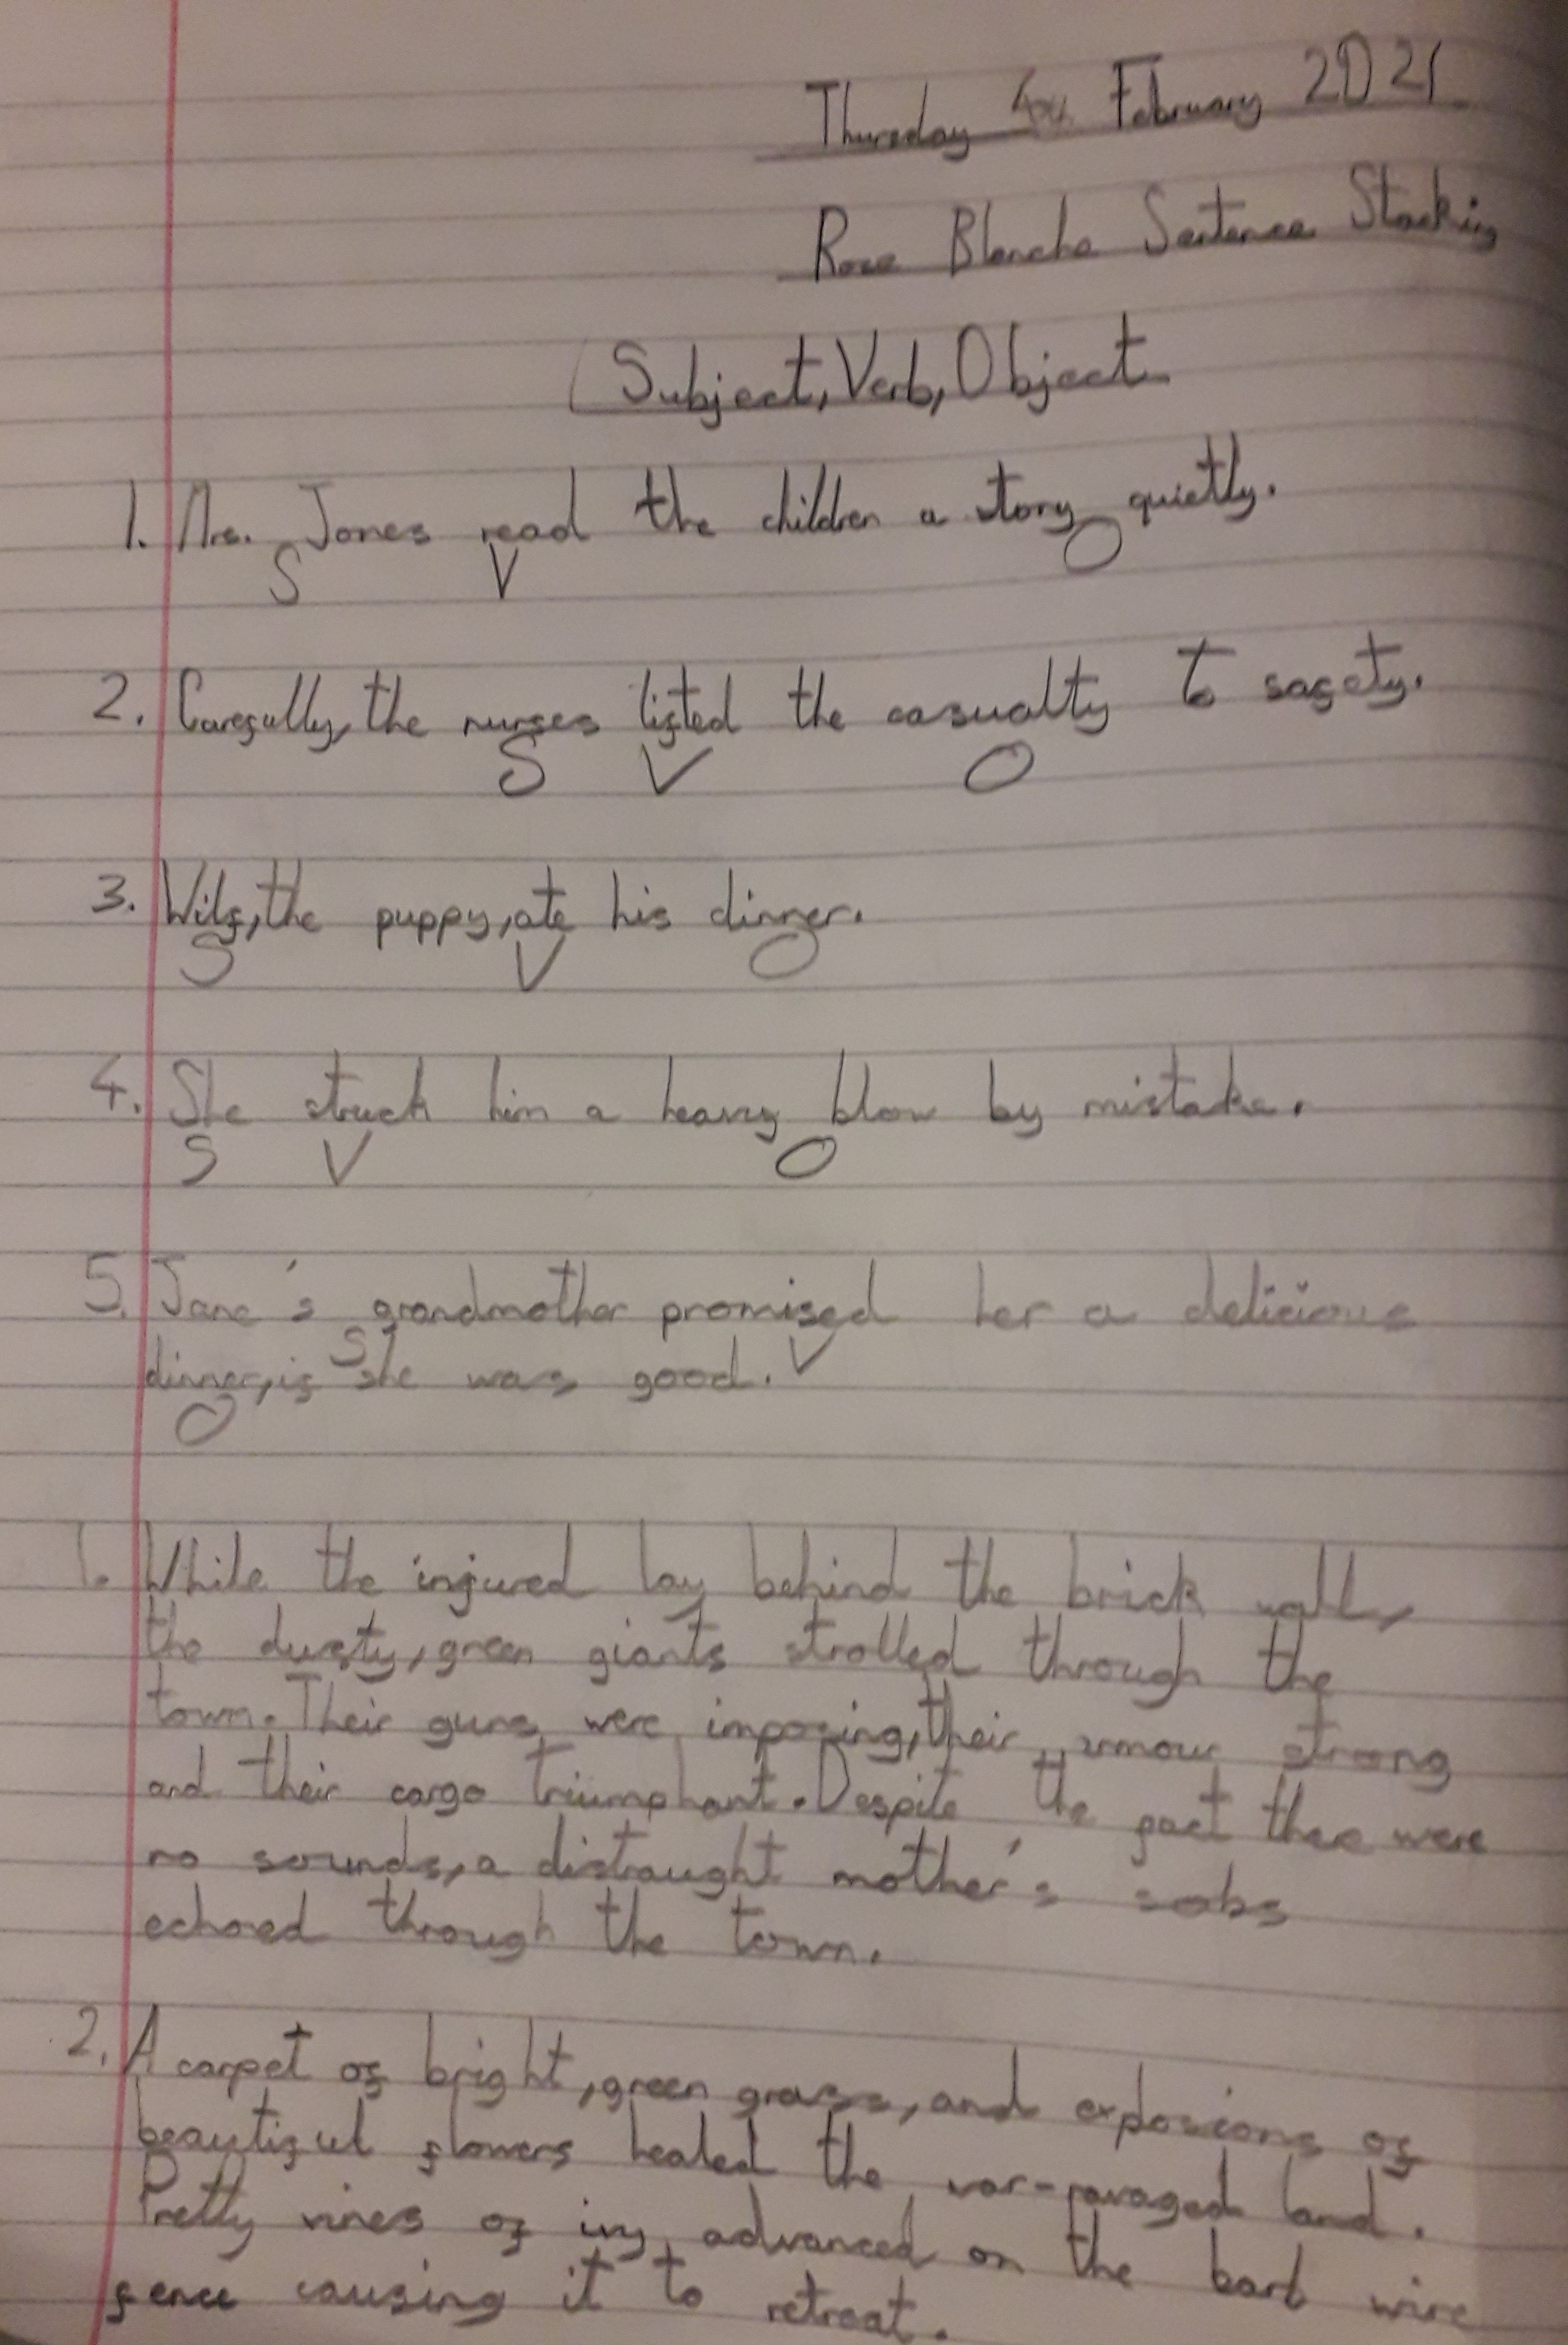 Thursday 4th February 2021
Rose Blanche Sentence Stacking
Subject, Verb, Object
1. Mrs. Jones read the children a story quietly.
S V O
2. Carefully, the nurses lifted the casualty to safety.
S V O
3. Wilf, the puppy, ate his dinner.
S V O
4. She struck him a heavy blow by mistake.
S V O
5. Jane's grandmother promised her a delicious
S V
dinner, if she was good.
O
1. While the injured lay behind the brick wall,
the dusty, green giants strolled through the
town. Their guns were imposing, their armour strong
and their cargo triumphant. Despite the fact there were
no sounds, a distraught mother's sobs
echoed through the town.
2. A carpet of bright, green grass, and explosions of
beautiful flowers healed the war-ravaged land.
Pretty vines of ivy advanced on the barb wire
fence causing it to retreat.